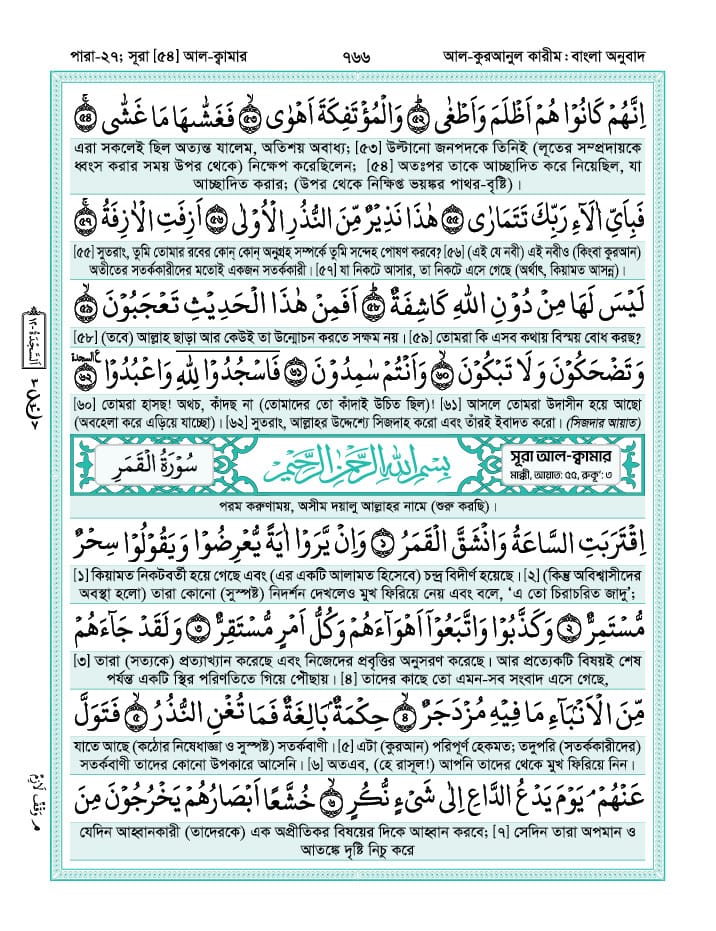 পারা-২৭; সূরা [৫৪] আল-ক্বামার
৭৬৬
আল-কুরআনুল কারীম : বাংলা অনুবাদ
اِنَّهُمْ كَانُوْا هُمْ اَظْلَمَ وَاَطْغٰى ۝٥٢ وَالْمُؤْتَفِكَةَ اَهْوٰى ۝٥٣ فَغَشّٰىهَا مَا غَشّٰى ۝٥٤
এরা সকলেই ছিল অত্যন্ত যালেম, অতিশয় অবাধ্য; [৫৩] উল্টানো জনপদকে তিনিই (লূতের সম্প্রদায়কে
ধ্বংস করার সময় উপর থেকে) নিক্ষেপ করেছিলেন; [৫৪] অতঃপর তাকে আচ্ছাদিত করে নিয়েছিল, যা
আচ্ছাদিত করার; (উপর থেকে নিক্ষিপ্ত ভয়ঙ্কর পাথর-বৃষ্টি)।
فَبِاَيِّ اٰلَآءِ رَبِّكَ تَتَمَارٰى ۝٥٥ هٰذَا نَذِيْرٌ مِّنَ النُّذُرِ الْاُوْلٰى ۝٥٦ اَزِفَتِ الْاٰزِفَةُ ۝٥٧
[৫৫] সুতরাং, তুমি তোমার রবের কোন্ কোন্ অনুগ্রহ সম্পর্কে তুমি সন্দেহ পোষণ করবে? [৫৬] (এই যে নবী) এই নবীও (কিংবা কুরআন)
অতীতের সতর্ককারীদের মতোই একজন সতর্ককারী। [৫৭] যা নিকটে আসার, তা নিকটে এসে গেছে (অর্থাৎ, কিয়ামত আসন্ন)।
لَيْسَ لَهَا مِنْ دُوْنِ اللّٰهِ كَاشِفَةٌ ۝٥٨ اَفَمِنْ هٰذَا الْحَدِيْثِ تَعْجَبُوْنَ ۝٥٩
[৫৮] (তবে) আল্লাহ ছাড়া আর কেউই তা উন্মোচন করতে সক্ষম নয়। [৫৯] তোমরা কি এসব কথায় বিস্ময় বোধ করছ?
وَتَضْحَكُوْنَ وَلَا تَبْكُوْنَ ۝٦٠ وَاَنْتُمْ سٰمِدُوْنَ ۝٦١ فَاسْجُدُوْا لِلّٰهِ وَاعْبُدُوْا ۝٦٢ السجدة
اَلسَّجْدَةُ ١٢
[৬০] তোমরা হাসছ! অথচ, কাঁদছ না (তোমাদের তো কাঁদাই উচিত ছিল)! [৬১] আসলে তোমরা উদাসীন হয়ে আছো
(অবহেলা করে এড়িয়ে যাচ্ছো)। [৬২] সুতরাং, আল্লাহর উদ্দেশ্যে সিজদাহ করো এবং তাঁরই ইবাদত করো। (সিজদার আয়াত)
سُوْرَةُ الْقَمَرِ
بِسْمِ اللّٰهِ الرَّحْمٰنِ الرَّحِيْمِ
সূরা আল-ক্বামার
মাক্কী, আয়াত: ৫৫, রুকূ': ৩
পরম করুণাময়, অসীম দয়ালু আল্লাহর নামে (শুরু করছি)।
اِقْتَرَبَتِ السَّاعَةُ وَانْشَقَّ الْقَمَرُ ۝١ وَاِنْ يَّرَوْا اٰيَةً يُّعْرِضُوْا وَيَقُوْلُوْا سِحْرٌ
[১] কিয়ামত নিকটবর্তী হয়ে গেছে এবং (এর একটি আলামত হিসেবে) চন্দ্র বিদীর্ণ হয়েছে। [২] (কিন্তু অবিশ্বাসীদের
অবস্থা হলো) তারা কোনো (সুস্পষ্ট) নিদর্শন দেখলেও মুখ ফিরিয়ে নেয় এবং বলে, ‘এ তো চিরাচরিত জাদু’;
مُّسْتَمِرٌّ ۝٢ وَكَذَّبُوْا وَاتَّبَعُوْٓا اَهْوَآءَهُمْ وَكُلُّ اَمْرٍ مُّسْتَقِرٌّ ۝٣ وَلَقَدْ جَآءَهُمْ
[৩] তারা (সত্যকে) প্রত্যাখ্যান করেছে এবং নিজেদের প্রবৃত্তির অনুসরণ করেছে। আর প্রত্যেকটি বিষয়ই শেষ
পর্যন্ত একটি স্থির পরিণতিতে গিয়ে পৌঁছায়। [৪] তাদের কাছে তো এমন-সব সংবাদ এসে গেছে,
مِّنَ الْاَنْۢبَآءِ مَا فِيْهِ مُزْدَجَرٌ ۝٤ حِكْمَةٌۢ بَالِغَةٌ فَمَا تُغْنِ النُّذُرُ ۝٥ فَتَوَلَّ
যাতে আছে (কঠোর নিষেধাজ্ঞা ও সুস্পষ্ট) সতর্কবাণী। [৫] এটা (কুরআন) পরিপূর্ণ হেকমত; তদুপরি (সতর্ককারীদের)
সতর্কবাণী তাদের কোনো উপকারে আসেনি। [৬] অতএব, (হে রাসূল!) আপনি তাদের থেকে মুখ ফিরিয়ে নিন।
عَنْهُمْ ۘ يَوْمَ يَدْعُ الدَّاعِ اِلٰى شَيْءٍ نُّكُرٍ ۝٦ خُشَّعًا اَبْصَارُهُمْ يَخْرُجُوْنَ مِنَ
م وقف لازم
যেদিন আহ্বানকারী (তাদেরকে) এক অপ্রীতিকর বিষয়ের দিকে আহ্বান করবে; [৭] সেদিন তারা অপমান ও
আতঙ্কে দৃষ্টি নিচু করে